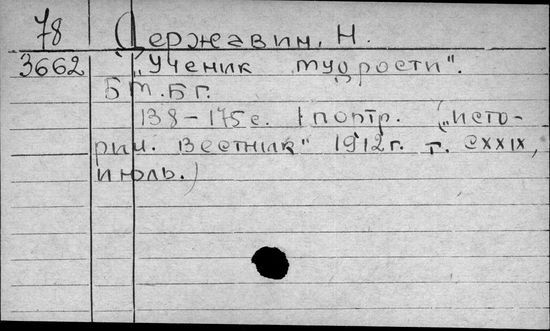 78 Державин, Н.
3662 "Ученик мудрости".
Б м. Б г.
138-175 с. 1 портр. ("Исто-
рич. вестник" 1912 г. т. CXXIX,
июль.)